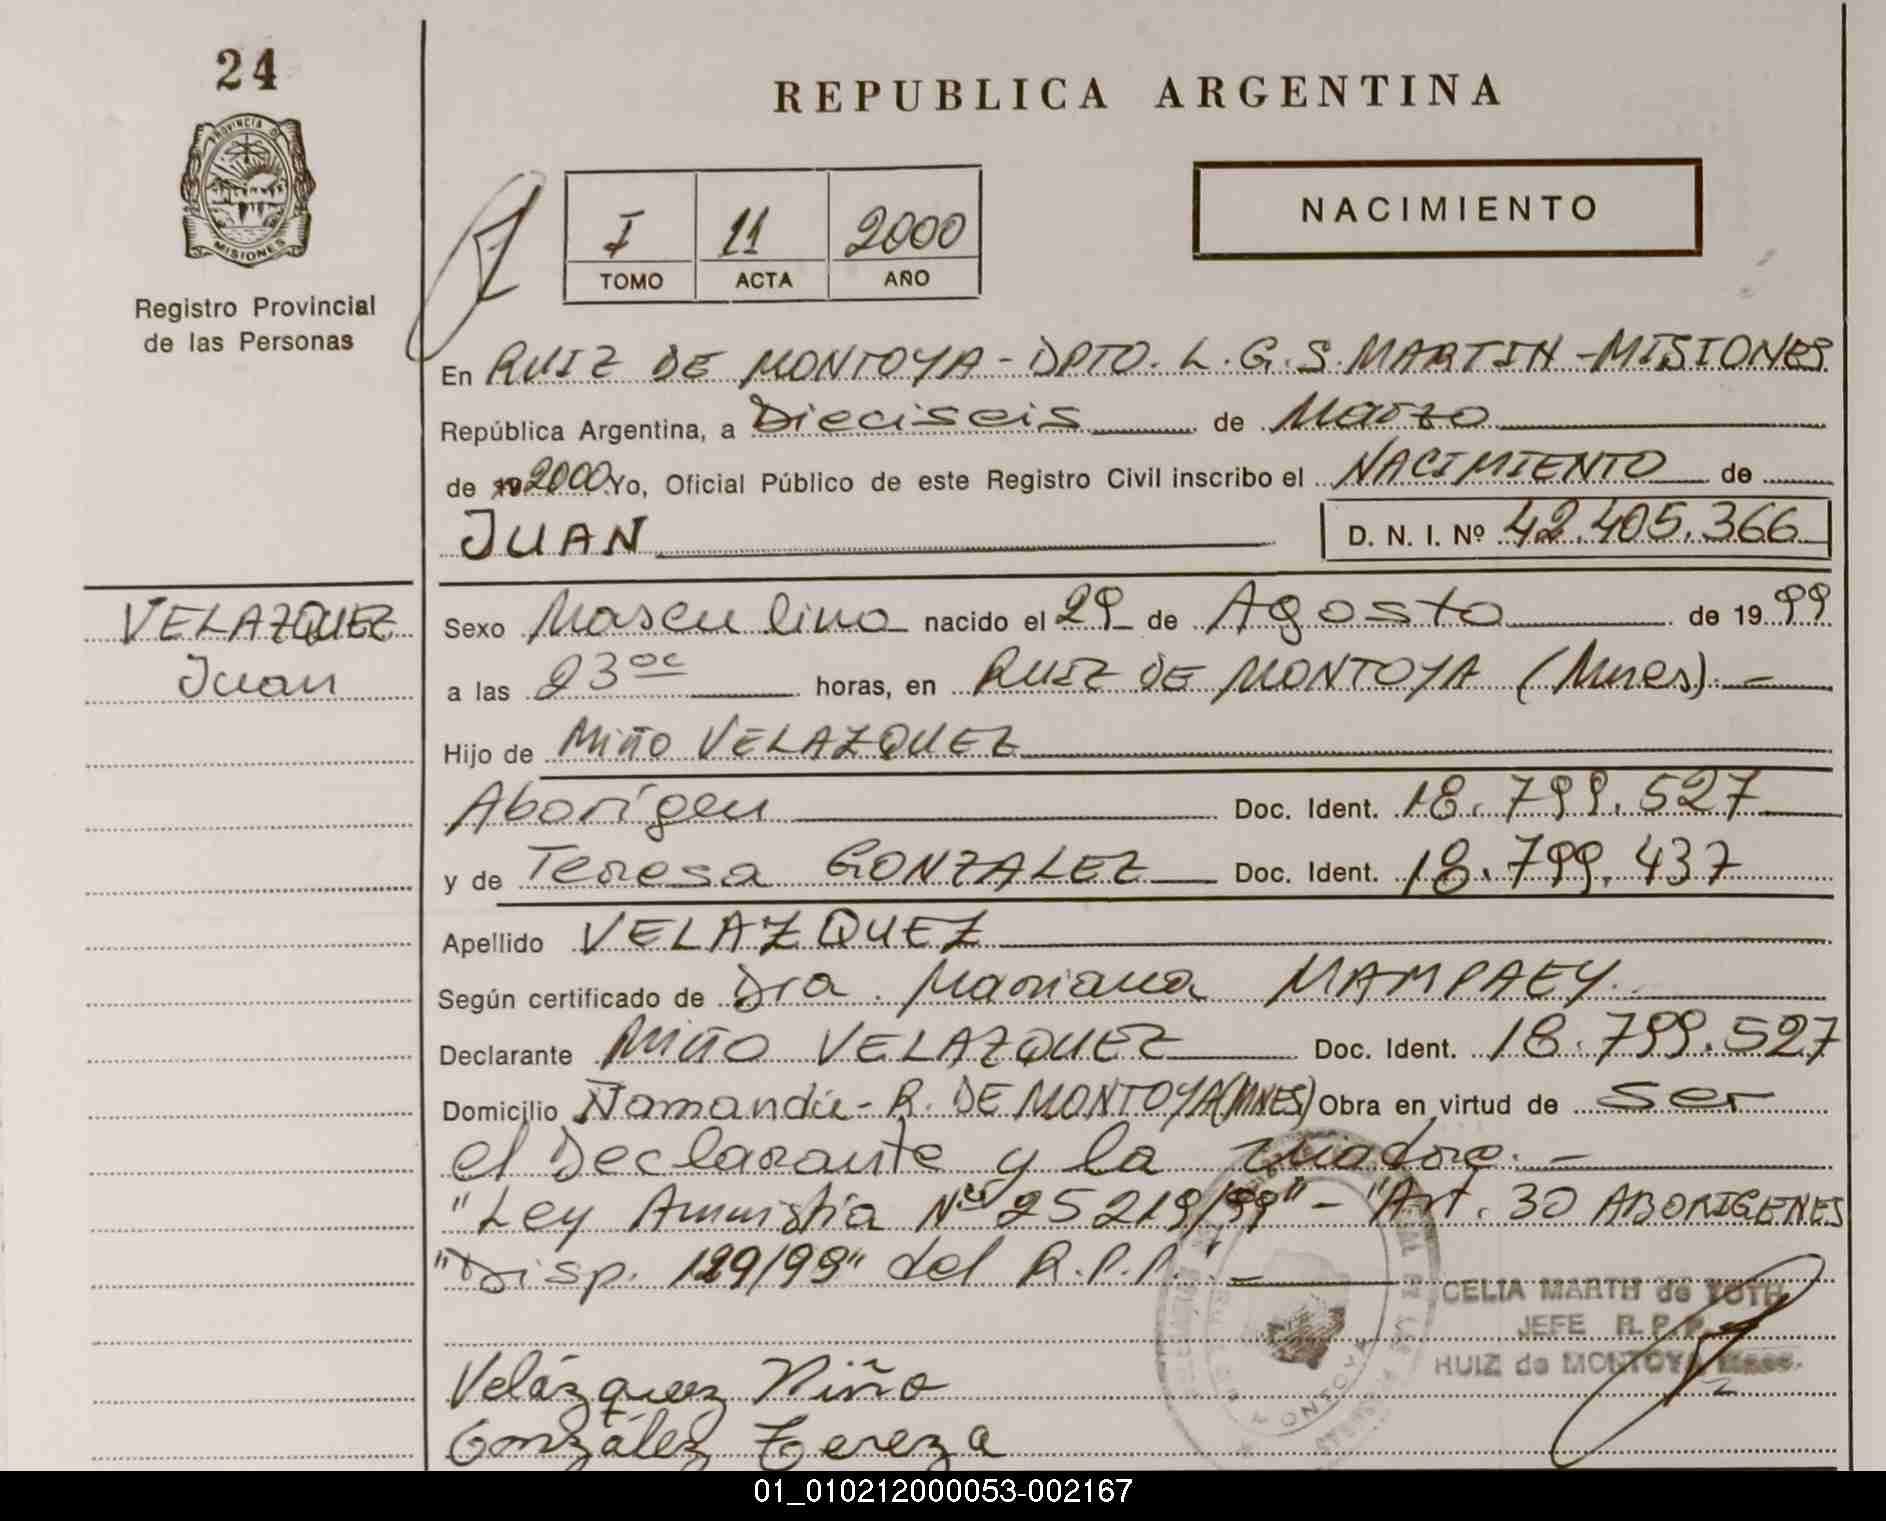 24
PROVINCIA DE
MISIONES
Registro Provincial
de las Personas
REPUBLICA ARGENTINA
I 11 2000
TOMO ACTA AÑO
NACIMIENTO
En RUIZ DE MONTOYA - DPTO. L.G.S. MARTIN - MISIONES
República Argentina, a Dieciseis de Marzo
de 19 2000 Yo, Oficial Público de este Registro Civil inscribo el NACIMIENTO de
JUAN D. N. I. Nº 42.405.366
VELAZQUEZ
Juan
Sexo Masculino nacido el 29 de Agosto de 19 99
a las 23 oc horas, en RUIZ DE MONTOYA (Mnes). -
Hijo de Miño VELAZQUEZ
Aborígen Doc. Ident. 18.799.527
y de Teresa GONZALEZ Doc. Ident. 18.799.437
Apellido VELAZQUEZ
Según certificado de Dra. Mariana MAMPAEY.
Declarante Miño VELAZQUEZ Doc. Ident. 18.799.527
Domicilio Ñamandú - R. DE MONTOYA (MNES) Obra en virtud de ser
el Declarante y la madre. -
"Ley Amnistía Nº 25219/99" - "Art. 30 ABORIGENES
"Disp. 129/99" del R.P.P. -
CELIA MARTH de TOTH
JEFE R.P.P.
RUIZ de MONTOYA Mnes.
Velázquez Miño
González Tereza
01_010212000053-002167